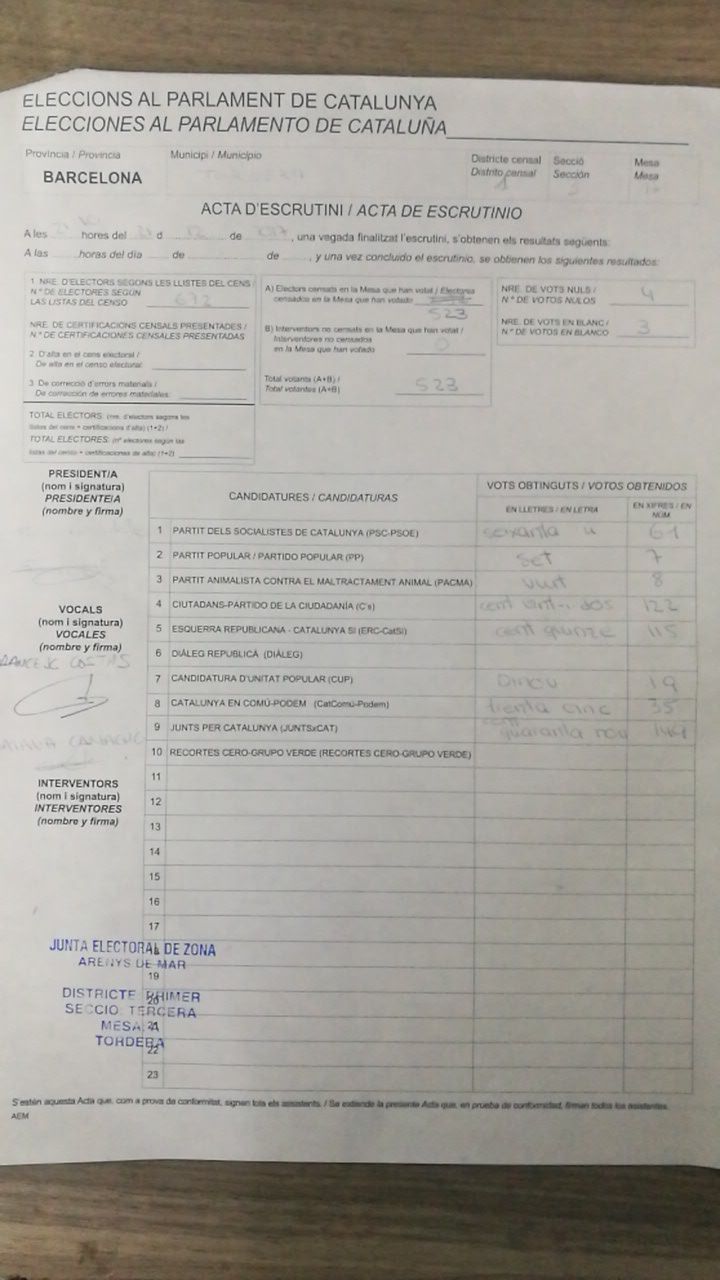 ELECCIONS AL PARLAMENT DE CATALUNYA
ELECCIONES AL PARLAMENTO DE CATALUÑA
Provincia / Provincia Municipi / Municipio Districte censal Secció Mesa
Distrito censal Sección Mesa
BARCELONA TORDERA 1
ACTA D'ESCRUTINI / ACTA DE ESCRUTINIO
A les hores del 21 d 12 de 2017, una vegada finalitzat l'escrutini, s'obtenen els resultats següents:
A las horas del día de de , y una vez concluido el escrutinio, se obtienen los siguientes resultados:
1 NRE. D'ELECTORS SEGONS LES LLISTES DEL CENS /
Nº DE ELECTORES SEGÚN
LAS LISTAS DEL CENSO 672
NRE. DE CERTIFICACIONS CENSALS PRESENTADES /
Nº DE CERTIFICACIONES CENSALES PRESENTADAS
2 D'alta en el cens electoral /
De alta en el censo electoral:
3 De correcció d'errors materials /
De corrección de errores materiales:
TOTAL ELECTORS: (nre. d'electors segons les
llistes del cens + certificacions d'alta) (1+2) /
TOTAL ELECTORES: (nº electores según las
listas del censo + certificaciones de alta) (1+2)
A) Electors censats en la Mesa que han votat / Electores
censados en la Mesa que han votado
523
B) Interventors no censats en la Mesa que han votat /
Interventores no censados
en la Mesa que han votado 0
Total votants (A+B) /
Total votantes (A+B) 523
NRE. DE VOTS NULS /
Nº DE VOTOS NULOS 4
NRE. DE VOTS EN BLANC /
Nº DE VOTOS EN BLANCO 3
PRESIDENT/A
(nom i signatura)
PRESIDENTE/A
(nombre y firma)
VOCALS
(nom i signatura)
VOCALES
(nombre y firma)
INTERVENTORS
(nom i signatura)
INTERVENTORES
(nombre y firma)
CANDIDATURES / CANDIDATURAS VOTS OBTINGUTS / VOTOS OBTENIDOS
EN LLETRES / EN LETRA EN XIFRES / EN NÚM.
1 PARTIT DELS SOCIALISTES DE CATALUNYA (PSC-PSOE) seixanta u 61
2 PARTIT POPULAR / PARTIDO POPULAR (PP) set 7
3 PARTIT ANIMALISTA CONTRA EL MALTRACTAMENT ANIMAL (PACMA) vuit 8
4 CIUTADANS-PARTIDO DE LA CIUDADANÍA (C's) cent vint-i-dos 122
5 ESQUERRA REPUBLICANA - CATALUNYA SÍ (ERC-CatSí) cent quinze 115
6 DIÀLEG REPUBLICÀ (DIÀLEG)
7 CANDIDATURA D'UNITAT POPULAR (CUP) Dinou 19
8 CATALUNYA EN COMÚ-PODEM (CatComú-Podem) trenta cinc 35
9 JUNTS PER CATALUNYA (JUNTSxCAT) cent quaranta nou 149
10 RECORTES CERO-GRUPO VERDE (RECORTES CERO-GRUPO VERDE)
11
12
13
14
15
16
17
19
20
21
22
23
JUNTA ELECTORAL DE ZONA
ARENYS DE MAR
DISTRICTE PRIMER
SECCIO TERCERA
MESA A
TORDERA
S'estén aquesta Acta que, com a prova de conformitat, signen tots els assistents. / Se extiende la presente Acta que, en prueba de conformidad, firman todos los asistentes.
AEM